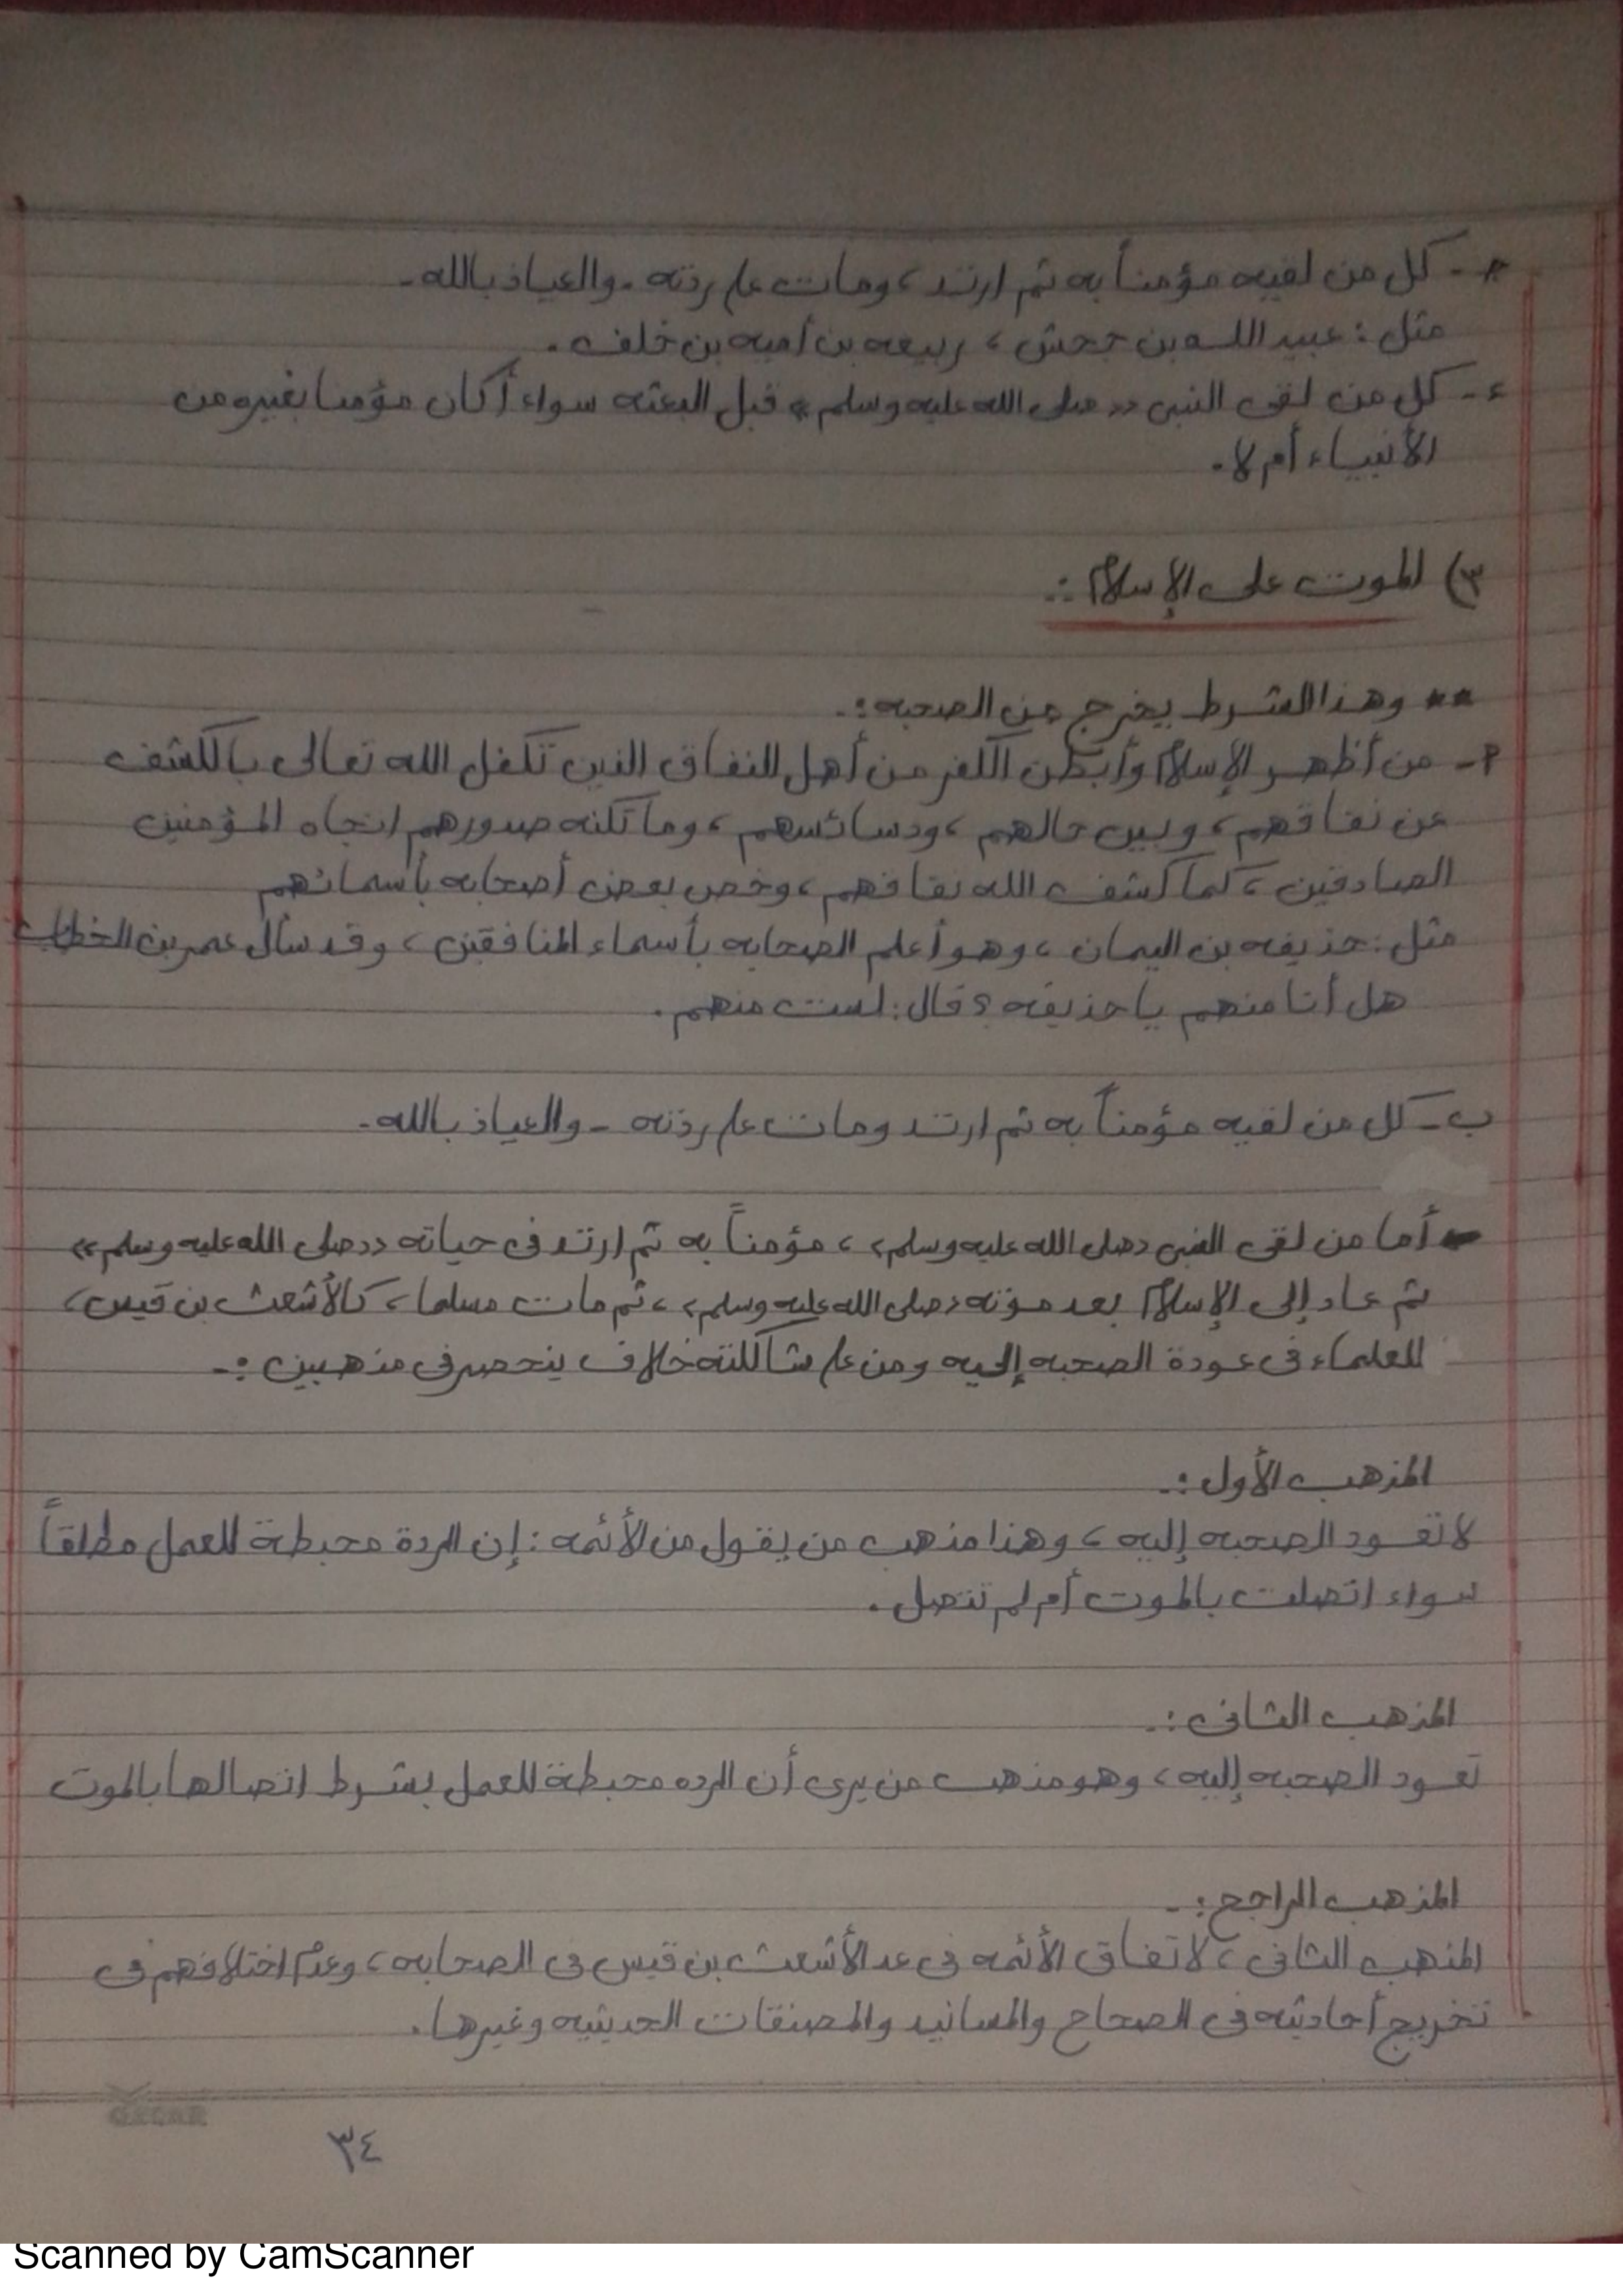 جـ - كل من لقيه مؤمناً به ثم ارتد، ومات على ردته - والعياذ بالله -
مثل : عبيد الله بن جحش ، ربيعه بن أميه بن خلف .
ء - كل من لقى النبى «صلى الله عليه وسلم» قبل البعثه سواء أكان مؤمنا بغيره من
الأنبياء أم لا .
٣) الموت على الإسلام :.
** وهذا الشرط يخرج من الصحبه :.
أ - من أظهر الإسلام وأبطن الكفر من أهل النفاق الذين تكفل الله تعالى بالكشف
عن نفاقهم ، وبين حالهم ، ودسائسهم ، وما تكنه صدورهم اتجاه المؤمنين
الصادقين ، كما كشف الله نفاقهم ، وخص بعض أصحابه بأسمائهم
مثل : حذيفه بن اليمان ، وهو أعلم الصحابه بأسماء المنافقين ، وقد سأل عمر بن الخطاب
هل أنا منهم يا حذيفه ؟ قال : لست منهم .
ب - كل من لقيه مؤمناً به ثم ارتد ومات على ردته - والعياذ بالله -
- أما من لقى النبى «صلى الله عليه وسلم» ، مؤمناً به ثم ارتد فى حياته «صلى الله عليه وسلم»
ثم عاد إلى الإسلام بعد موته «صلى الله عليه وسلم» ، ثم مات مسلما ، كالأشعث بن قيس ،
للعلماء فى عودة الصحبه إليه ومن على شاكلته خلاف ينحصر فى مذهبين :-
المذهب الأول :.
لا تعود الصحبه إليه ، وهذا مذهب من يقول من الأئمه : إن الردة محبطة للعمل مطلقاً
سواء اتصلت بالموت أم لم تتصل .
المذهب الثانى :.
تعود الصحبه إليه ، وهو مذهب من يرى أن الرده محبطة للعمل بشرط اتصالها بالموت
المذهب الراجح :-
المذهب الثانى ، لاتفاق الأئمه فى عد الأشعث بن قيس فى الصحابه ، وعدم اختلافهم فى
تخريج أحاديثه فى الصحاح والمسانيد والمصنفات الحديثيه وغيرها .
٣٤
Scanned by CamScanner